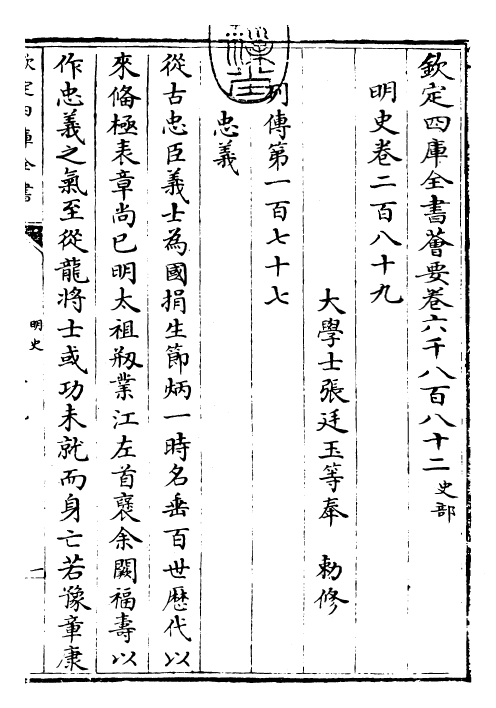 欽定四庫全書薈要卷六千八百八十二 史部
明史卷二百八十九
大學士張廷玉等奉 勅修
列傳第一百七十七
忠義
從古忠臣義士為國捐生節炳一時名垂百世歷代以
來備極表章尚已明太祖剏業江左首襃余闕福壽以
作忠義之氣至從龍將士或功未就而身亡若豫章康
欽定四庫全書
明史